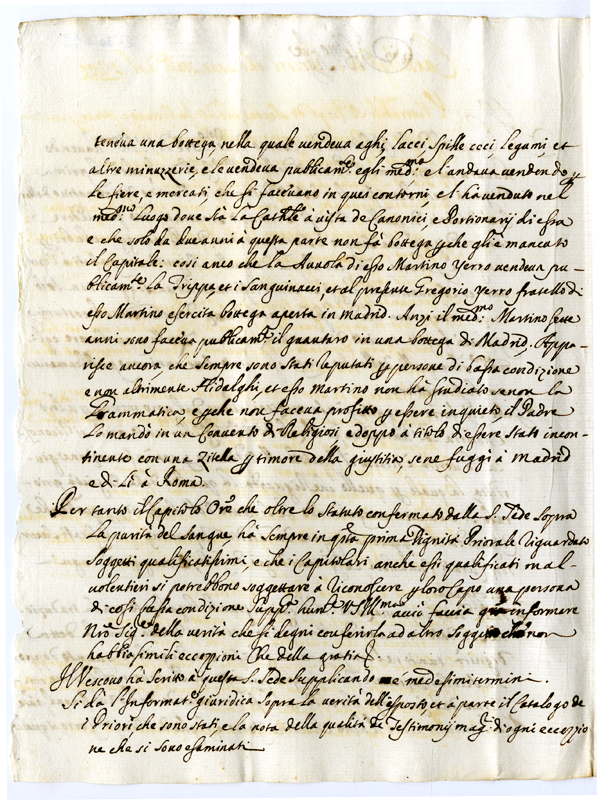 teneua una bottega nella quale vendeua aghi, lacci, spille ceci, legumi, et
altre minuzzerie, e le vendeua publicam.te egli med.mo e l'andaua vendendo p
le fiere, e mercati, che si faceuano in quei contorni, e l'hà venduto nel
med.mo luogo doue stà la Catt.le à vista de Canonici, e Portionarij di essa
e che solo da due anni à questa parte non fà bottega p che gl'è mancato
il Capitale: cosi anco che la Auuola di esso Martino Yerro vendeua pu-
blicam.te la Trippa, et i Sanguinacci, et al presente Gregorio Yerro fratello di
esso Martino esercita bottega aperta in Madrid. Anzi il med.mo Martino sette
anni sono faceua publicam.te il guantaro in una bottega di Madrid. Appa-
risce ancora, che sempre sono stati reputati p persone di bassa condizione
e non altrimente Hidalghi, et esso Martino non hà studiato se non la
Grammatica, e p che non faceua profitto, p essere inquieto, il Padre
lo mandò in un Conuento di Religiosi e doppo à titolo di essere stato incon-
tinente con una Zitella p timore della giustitia, se ne fuggì à Madrid
e di lì à Roma.
Per tanto il Capitolo Ore che oltre lo Statuto confermato dalla S. Sede sopra
la purità del sangue hà sempre in q.sta prima Dignità Priorale riguardato
soggetti qualificatissimi, e che i Capitolari anche essi qualificati mal-
uolentieri si potrebbono soggettare à riconoscere p loro Capo una persona
di cosi bassa condizione supp.ca hum.te V.S. Ill.ma acciò faccia informare
Nro Sig.re della verità che si degni conferirla ad altro soggetto che non
habbia simili eccezzioni Che della gratia
Il Vescouo hà scritto à questa S. Sede supplicando ne medesimi termini.
Si dà l'Informat.e giuridica sopra la verità dell'esposto, et à parte il Catalogo de
i Priori che sono stati, e la nota della qualità de Testimonij mag.ri di ogni eccezzio
ne che si sono esaminati